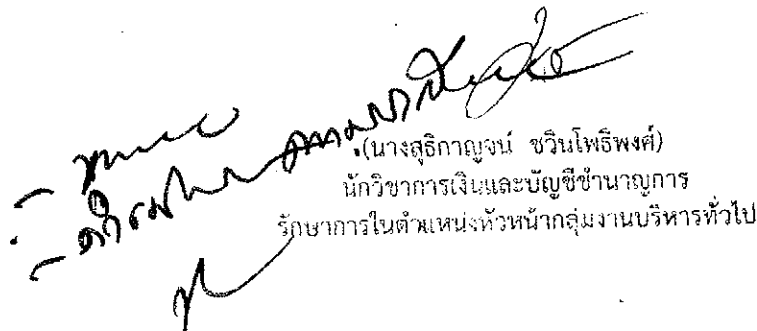 - ทราบ
- ดำเนินการตามเสนอ
(นางสุธิกาญจน์ ชวินโพธิพงศ์)
นักวิชาการเงินและบัญชีชำนาญการ
รักษาการในตำแหน่งหัวหน้ากลุ่มงานบริหารทั่วไป